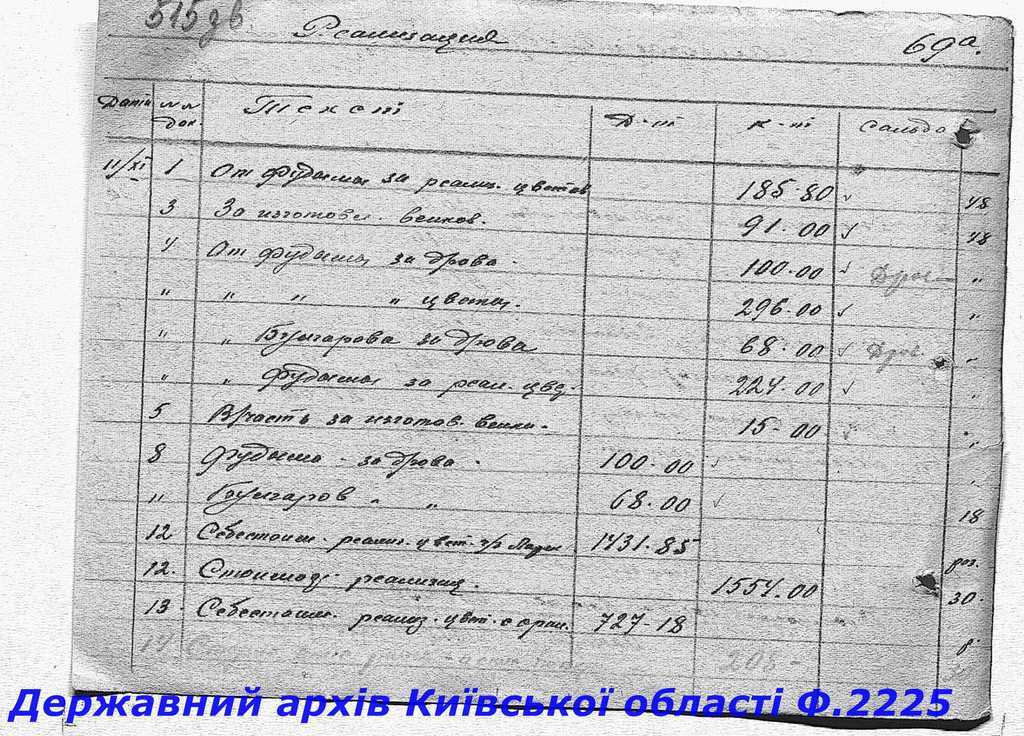 515
Реализация 69а.
Дата №№ док. Текст Д-т К-т Сальдо
11/XI 1 От Фудыма за реализ. цветов 185-80 48
3 За изготовл. венков. 91-00 48
4 От Фудыма за дрова 100-00 "
" " " " цветы. 296-00 "
" " Болгарова за дрова 68-00 "
" " Фудыма за реал. цвет. 224-00 "
5 за изготов. венки 15-00 "
8 Фудыма - за дрова 100-00 "
" Болгаров " " 68-00 18
12 Себестоим. реализ. цвет. 1431-85
12. реализац. 1554.00 30
13 Себестоим. реализ. цвет. 727-18
Державний архів Київської області Ф.2225